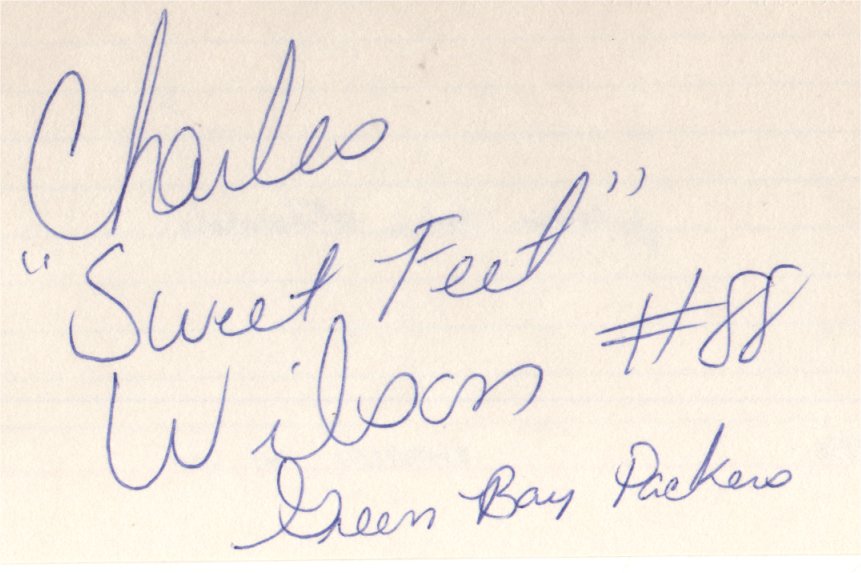 Charles
"Sweet Feet"
Wilson #88
Green Bay Packers